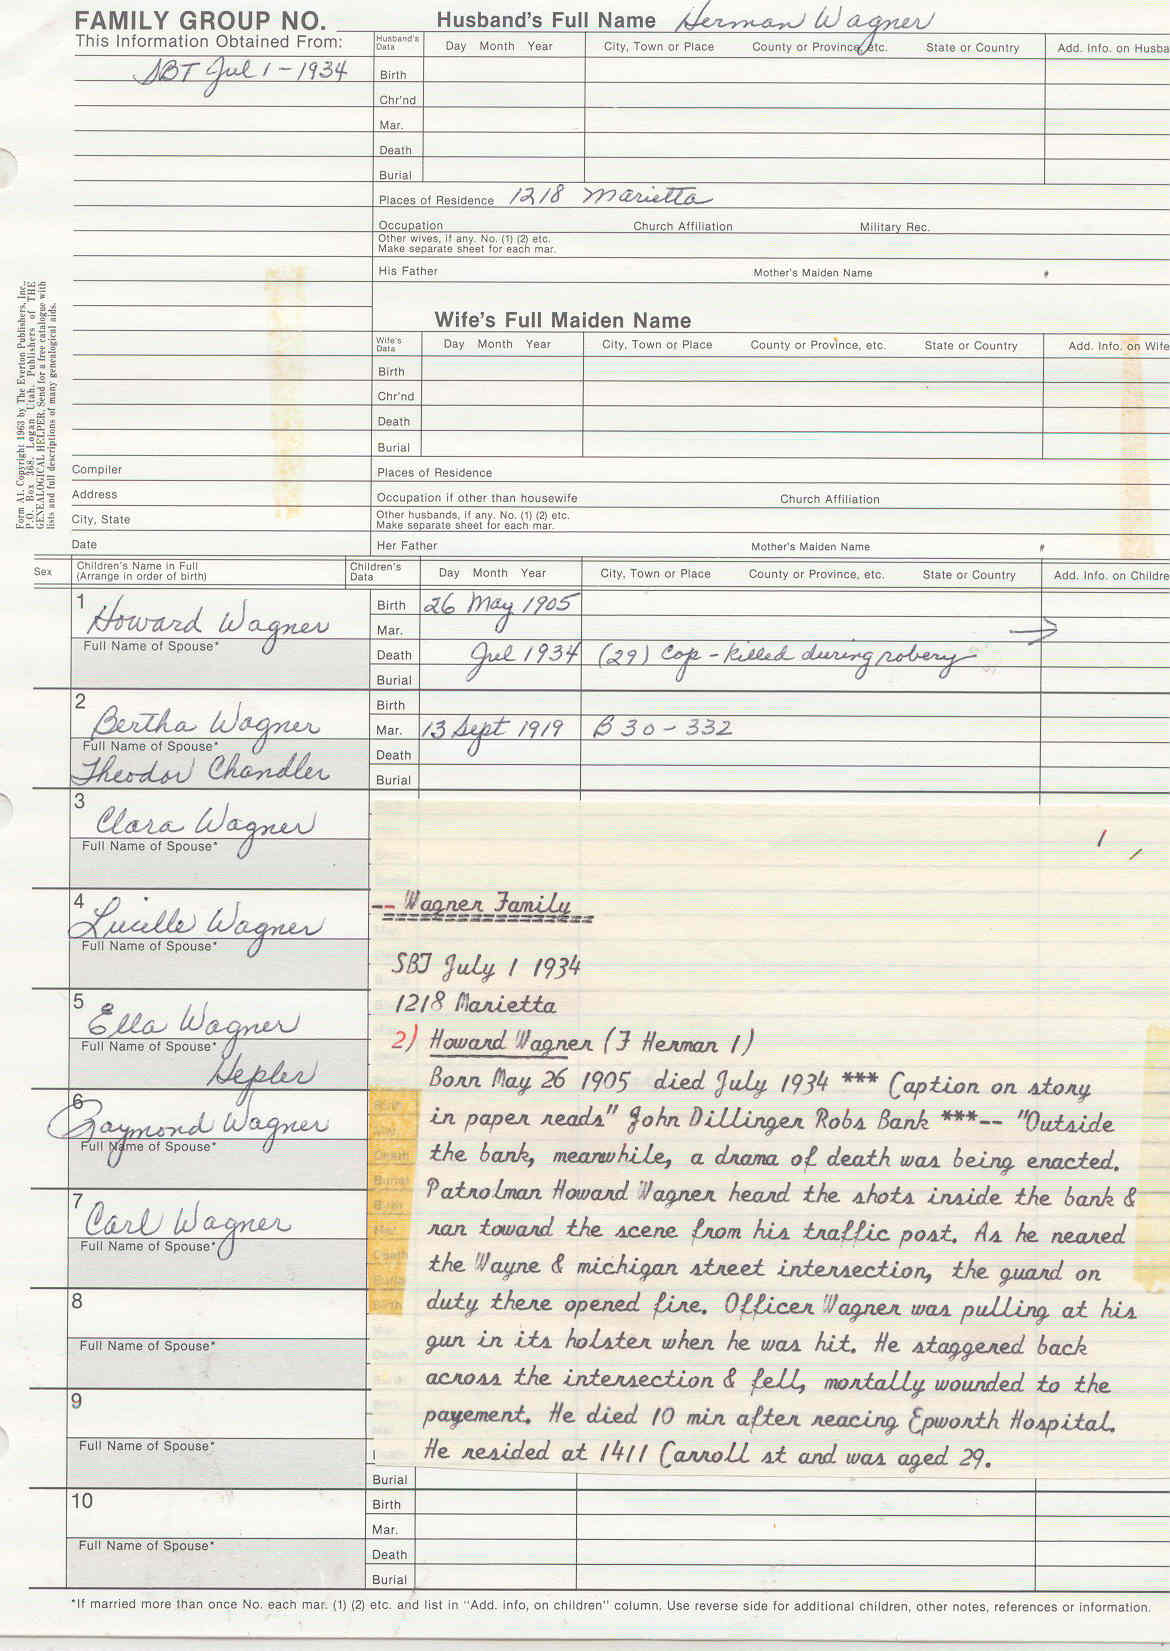 FAMILY GROUP NO.
Husband's Full Name Herman Wagner
This Information Obtained From:
SBT Jul 1 - 1934
Husband's Data Day Month Year City, Town or Place County or Province, etc. State or Country Add. Info. on Husba
Birth
Chr'nd
Mar.
Death
Burial
Places of Residence 1218 Marietta
Occupation Church Affiliation Military Rec.
Other wives, if any. No. (1) (2) etc.
Make separate sheet for each mar.
His Father Mother's Maiden Name
Form A1. Copyright 1963 by The Everton Publishers, Inc.,
P.O. Box 368, Logan Utah. Publishers of THE
GENEALOGICAL HELPER. Send for a free catalogue with
lists and full descriptions of many genealogical aids.
Wife's Full Maiden Name
Wife's Data Day Month Year City, Town or Place County or Province, etc. State or Country Add. Info. on Wife
Birth
Chr'nd
Death
Burial
Compiler
Places of Residence
Address
Occupation if other than housewife Church Affiliation
City, State
Other husbands, if any. No. (1) (2) etc.
Make separate sheet for each mar.
Date
Her Father Mother's Maiden Name
Sex Children's Name in Full
(Arrange in order of birth)
Children's Data Day Month Year City, Town or Place County or Province, etc. State or Country Add. Info. on Childre
1 Howard Wagner
Full Name of Spouse*
Birth 26 May 1905
Mar. →
Death Jul 1934 (29) Cop - killed during robery
Burial
2 Bertha Wagner
Full Name of Spouse*
Theodor Chandler
Birth
Mar. 13 Sept 1919 B 30 - 332
Death
Burial
3 Clara Wagner
Full Name of Spouse*
4 Lucille Wagner
Full Name of Spouse*
5 Ella Wagner
Full Name of Spouse*
Hepler
6 Raymond Wagner
Full Name of Spouse*
7 Carl Wagner
Full Name of Spouse*
8
Full Name of Spouse*
9
Full Name of Spouse*
-- Wagner Family
SBT July 1 1934
1218 Marietta
2) Howard Wagner (F Herman 1)
Born May 26 1905 died July 1934 *** Caption on story
in paper reads" John Dillinger Robs Bank ***-- "Outside
the bank, meanwhile, a drama of death was being enacted.
Patrolman Howard Wagner heard the shots inside the bank &
ran toward the scene from his traffic post. As he neared
the Wayne & michigan street intersection, the guard on
duty there opened fire. Officer Wagner was pulling at his
gun in its holster when he was hit. He staggered back
across the intersection & fell, mortally wounded to the
payement. He died 10 min after reacing Epworth Hospital.
He resided at 1411 Carroll st and was aged 29.
Burial
10
Full Name of Spouse*
Birth
Mar.
Death
Burial
*If married more than once No. each mar. (1) (2) etc. and list in "Add. info, on children" column. Use reverse side for additional children, other notes, references or information.